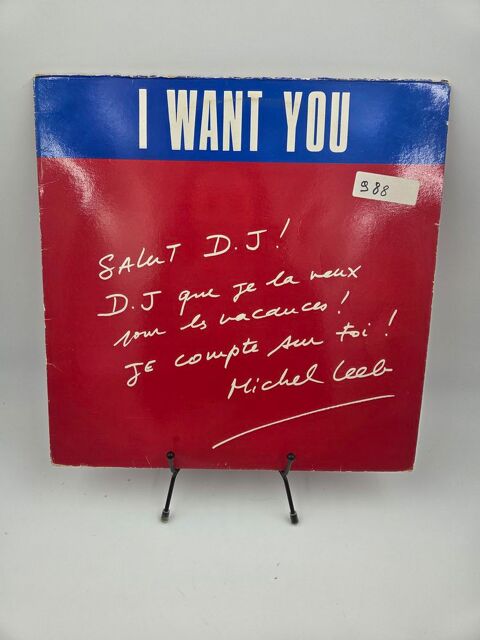 I WANT YOU
988
SALUT D.J!
D.J que je la veux
pour les vacances!
JE compte sur toi!
Michel Leeb